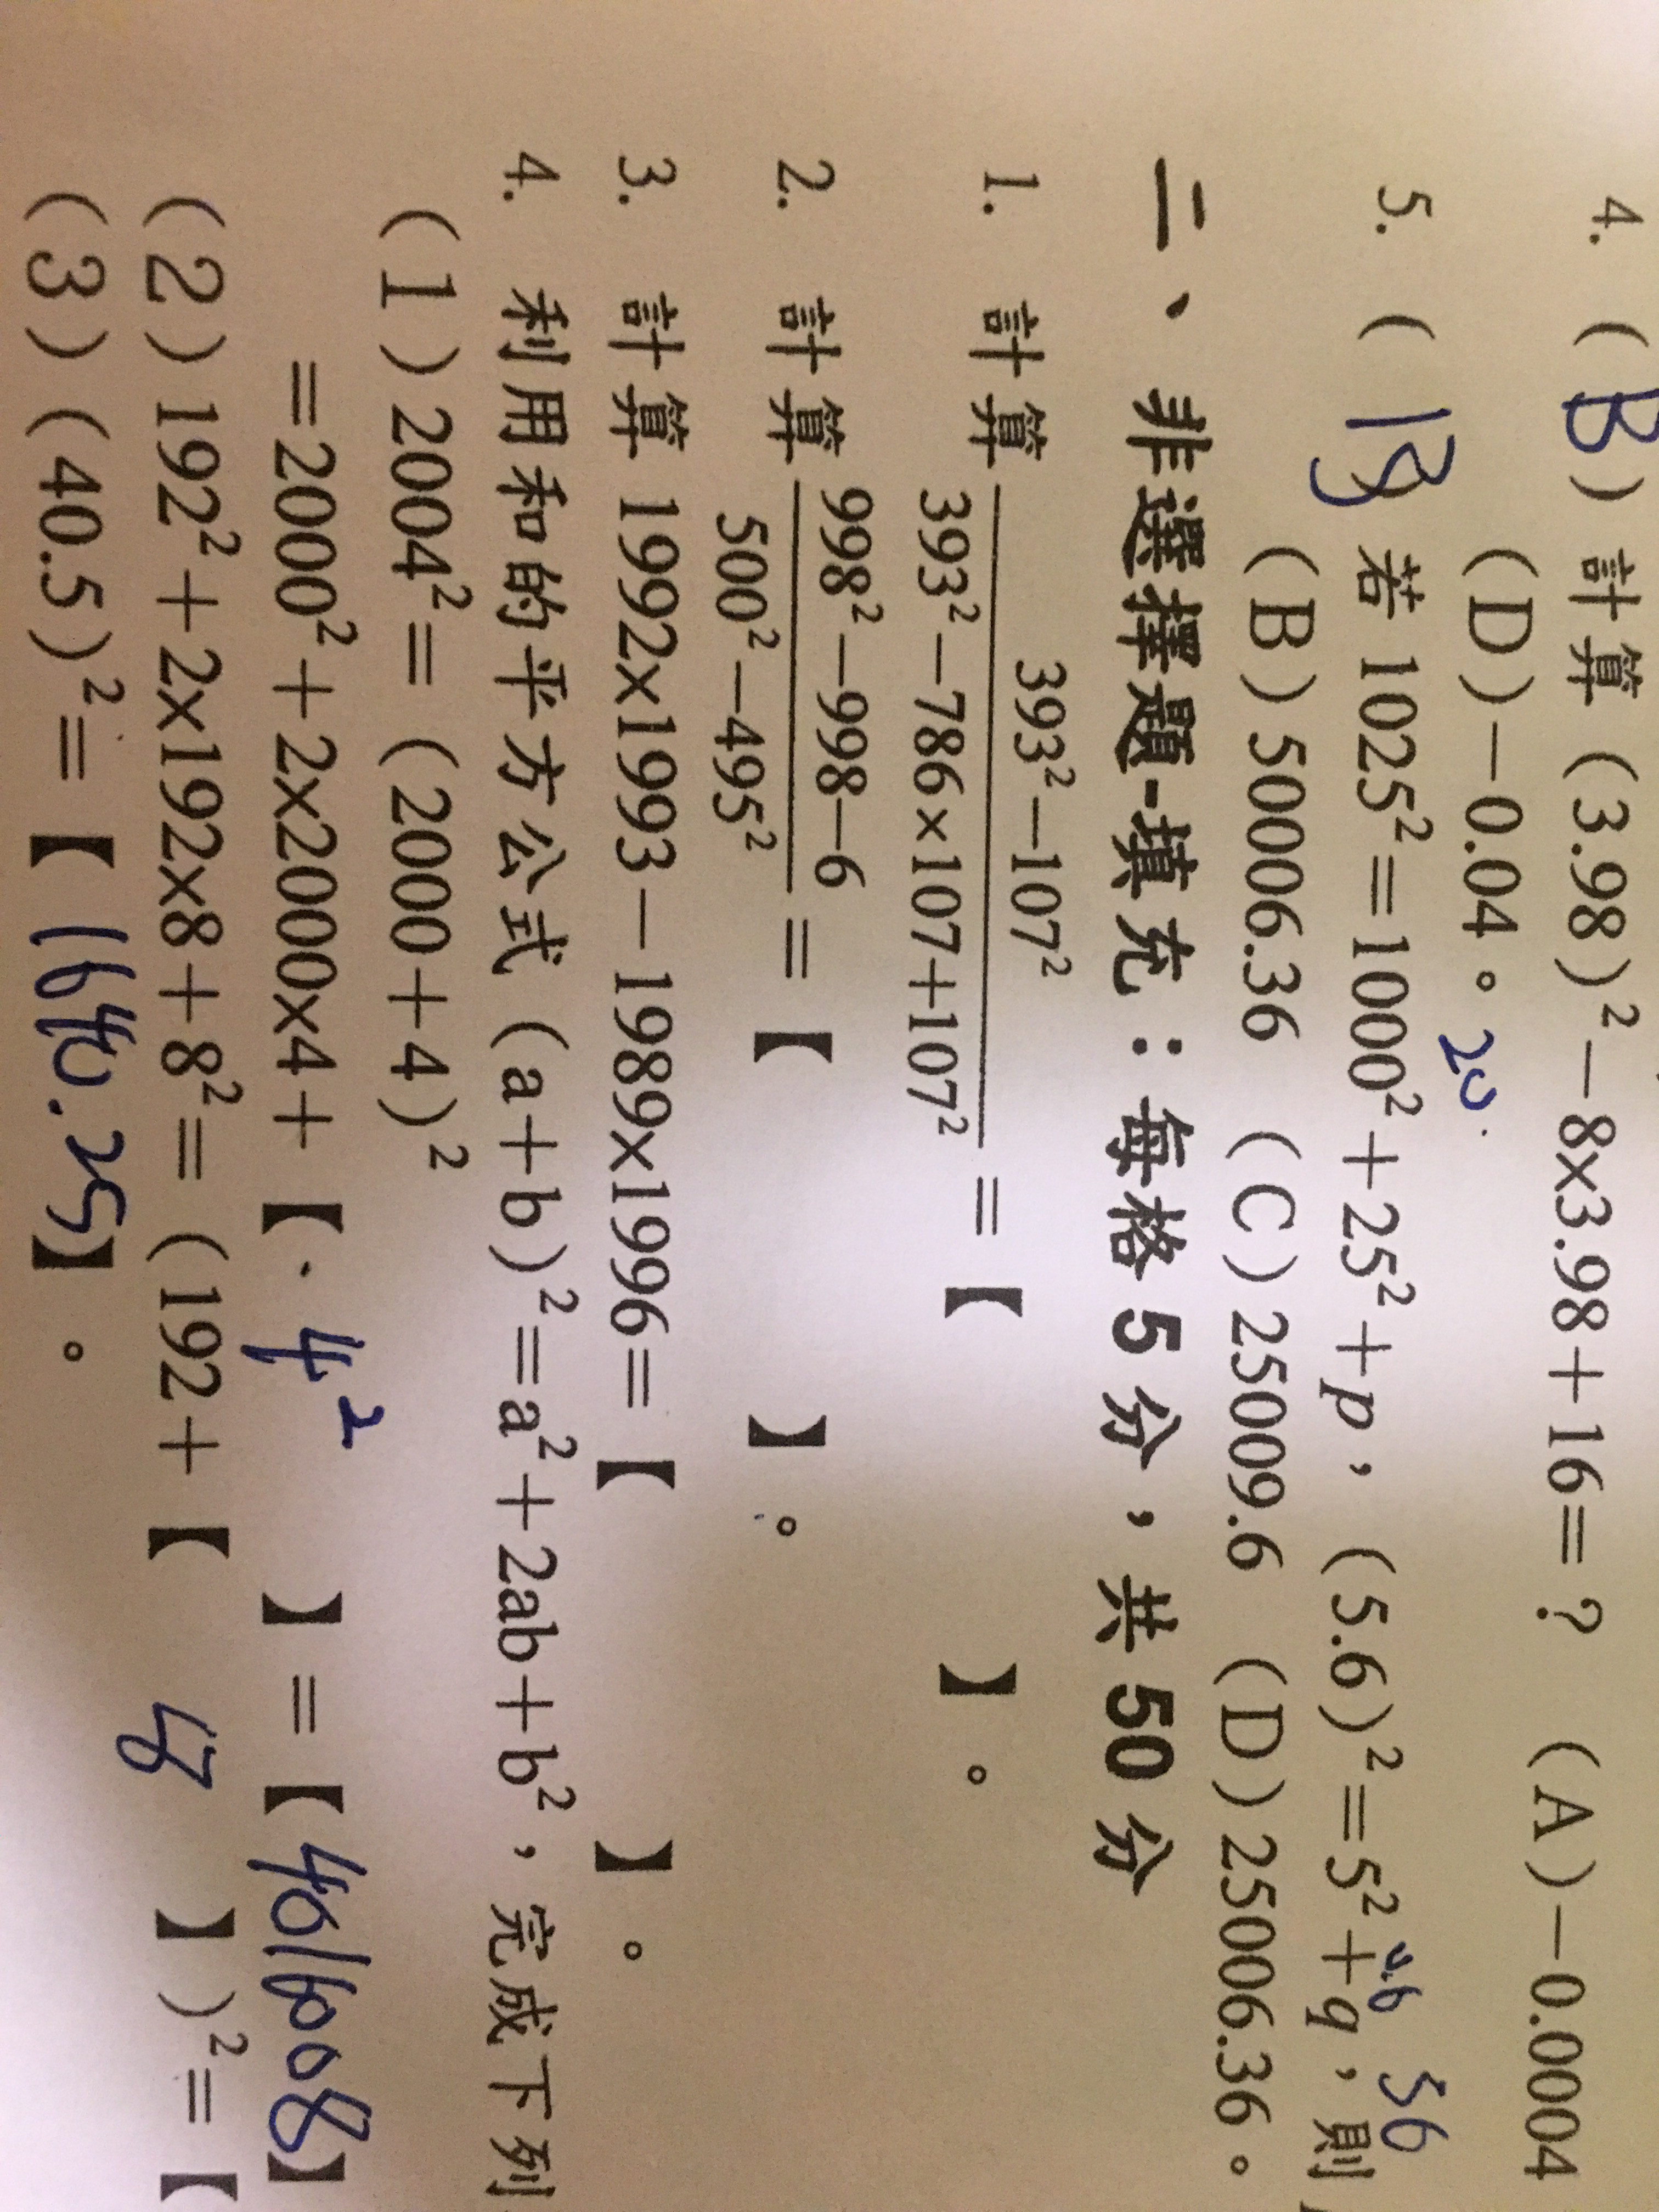 4. ( B ) 計算 (3.98)²－8x3.98＋16＝? (A)－0.0004
(D)－0.04。
20
0.6 36
5. ( B 若 1025²＝1000²＋25²＋p，(5.6)²＝5²＋q，則
(B) 50006.36 (C) 25009.6 (D) 25006.36。
二、非選擇題-填充：每格 5 分，共 50 分
1. 計算 393²－107² / 393²－786×107＋107² ＝【 】。
2. 計算 998²－998－6 / 500²－495² ＝【 】。
3. 計算 1992x1993－1989x1996＝【 】。
4. 利用和的平方公式 (a＋b)²＝a²＋2ab＋b²，完成下列
(1) 2004²＝(2000＋4)²
＝2000²＋2x2000x4＋【 4² 】＝【 4016008】
(2) 192²＋2x192x8＋8²＝(192＋【 8 】)²＝【
(3) (40.5)²＝【 1640.25】。